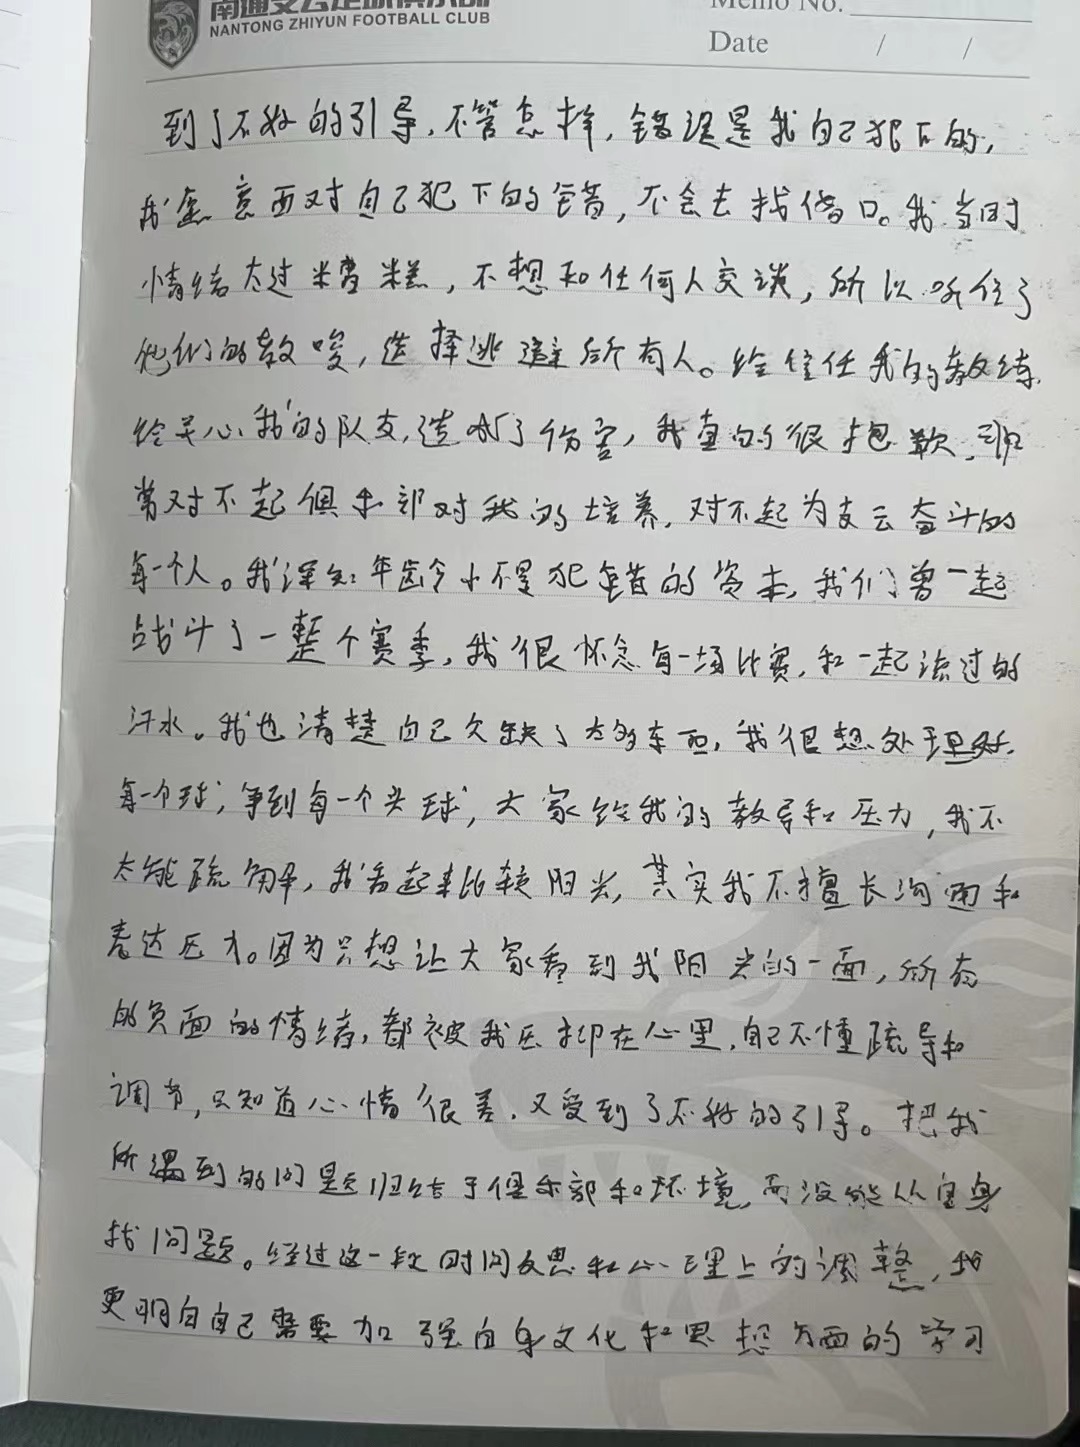 南通支云足球俱乐部
NANTONG ZHIYUN FOOTBALL CLUB
Memo No.
Date / /
到了不好的引导，不管怎样，错误是我自己犯下的，
我愿意面对自己犯下的错，不会去找借口。我当时
情绪太过糟糕，不想和任何人交谈，所以听信了
他们的教唆，选择逃避所有人。给信任我的教练
给关心我的队友，造成了伤害，我真的很抱歉，非
常对不起俱乐部对我的培养，对不起为支云奋斗的
每一个人。我深知年龄小不是犯错的资本，我们曾一起
战斗了一整个赛季，我很怀念每一场比赛，和一起流过的
汗水。我也清楚自己欠缺了太多东西，我很想处理好
每一个球，争到每一个头球，大家给我的教导和压力，我不
太能疏解，我看起来比较阳光，其实我不擅长沟通和
表达压力。因为只想让大家看到我阳光的一面，所有
的负面的情绪，都被我压抑在心里，自己不懂疏导和
调节，只知道心情很差，又受到了不好的引导。把我
所遇到的问题归结于俱乐部和环境，而没能从自身
找问题。经过这一段时间反思和心理上的调整，我
更明白自己需要加强自身文化和思想方面的学习